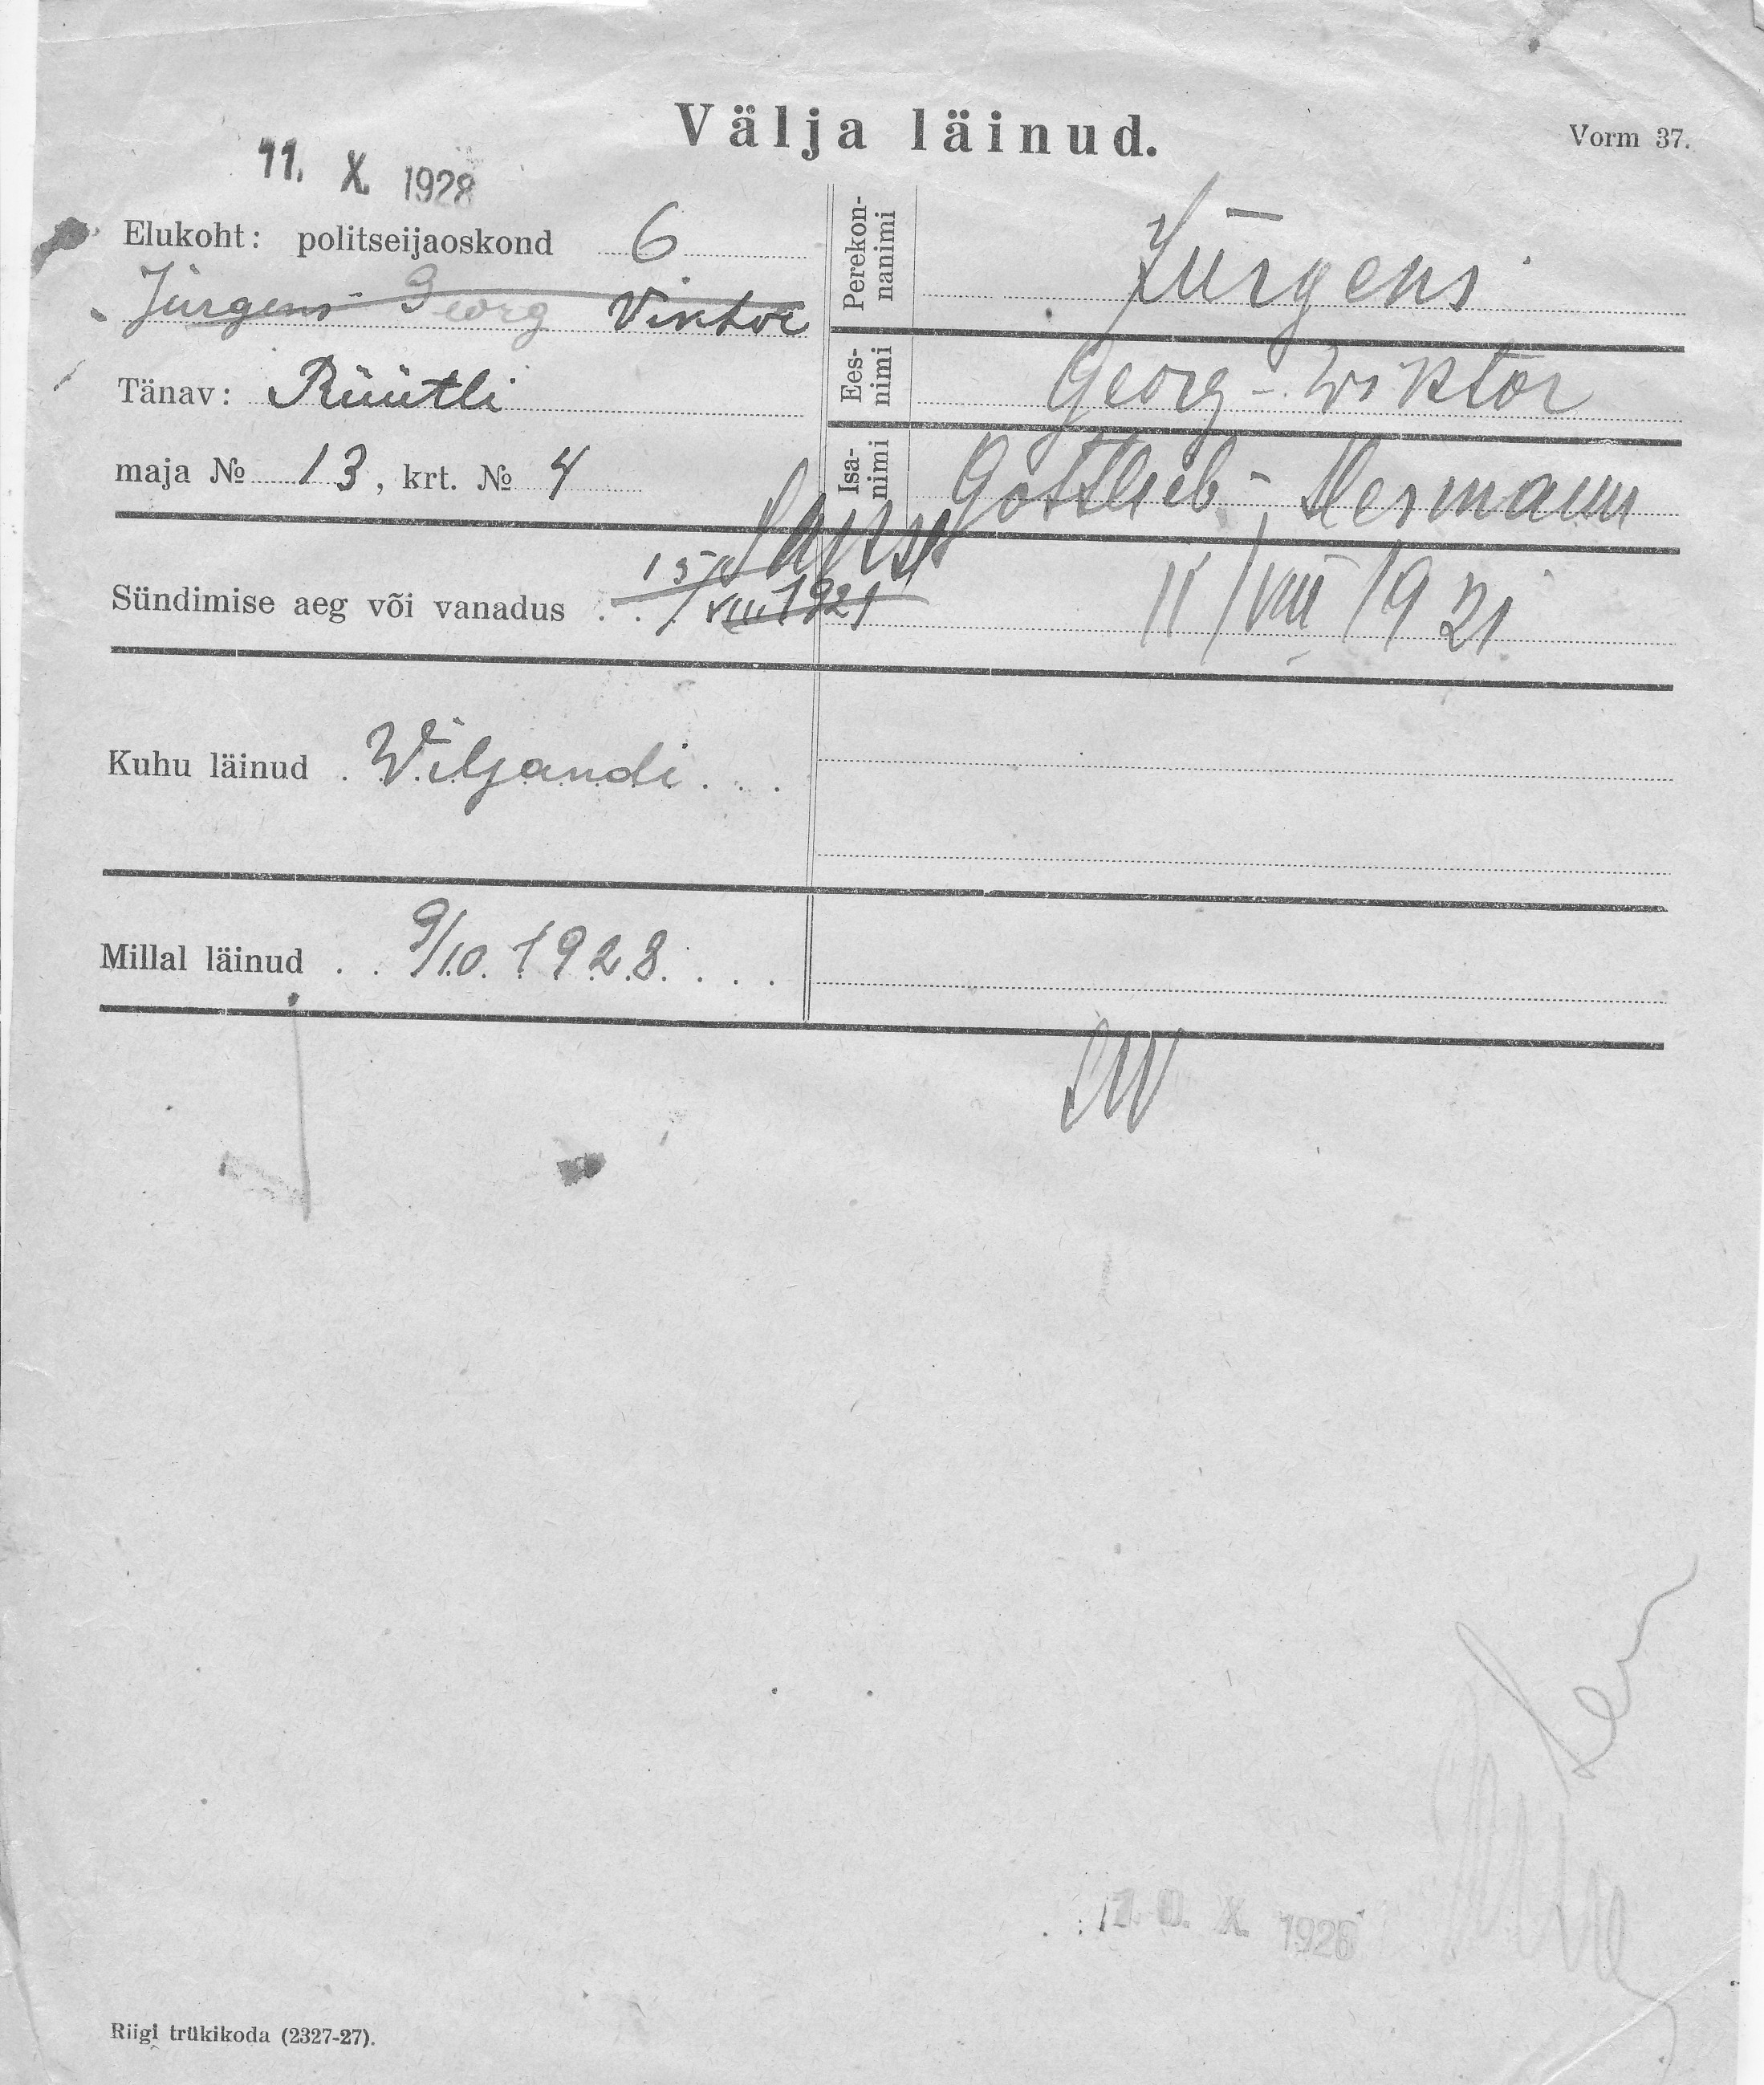 Välja läinud.
Vorm 37.
11. X. 1928
Elukoht: politseijaoskond 6
Jürgens Georg Viktor
Tänav: Rüütli
maja № 13, krt. № 4
Perekonnanimi Jürgens
Eesnimi Georg-Wiktor
Isanimi Gottlieb-Hermann
Sündimise aeg või vanadus 15/VIII 1921
11/VIII 1921
Kuhu läinud Wiljandi
Millal läinud 9/10. 1928.
X. 1928
Riigi trükikoda (2327-27).